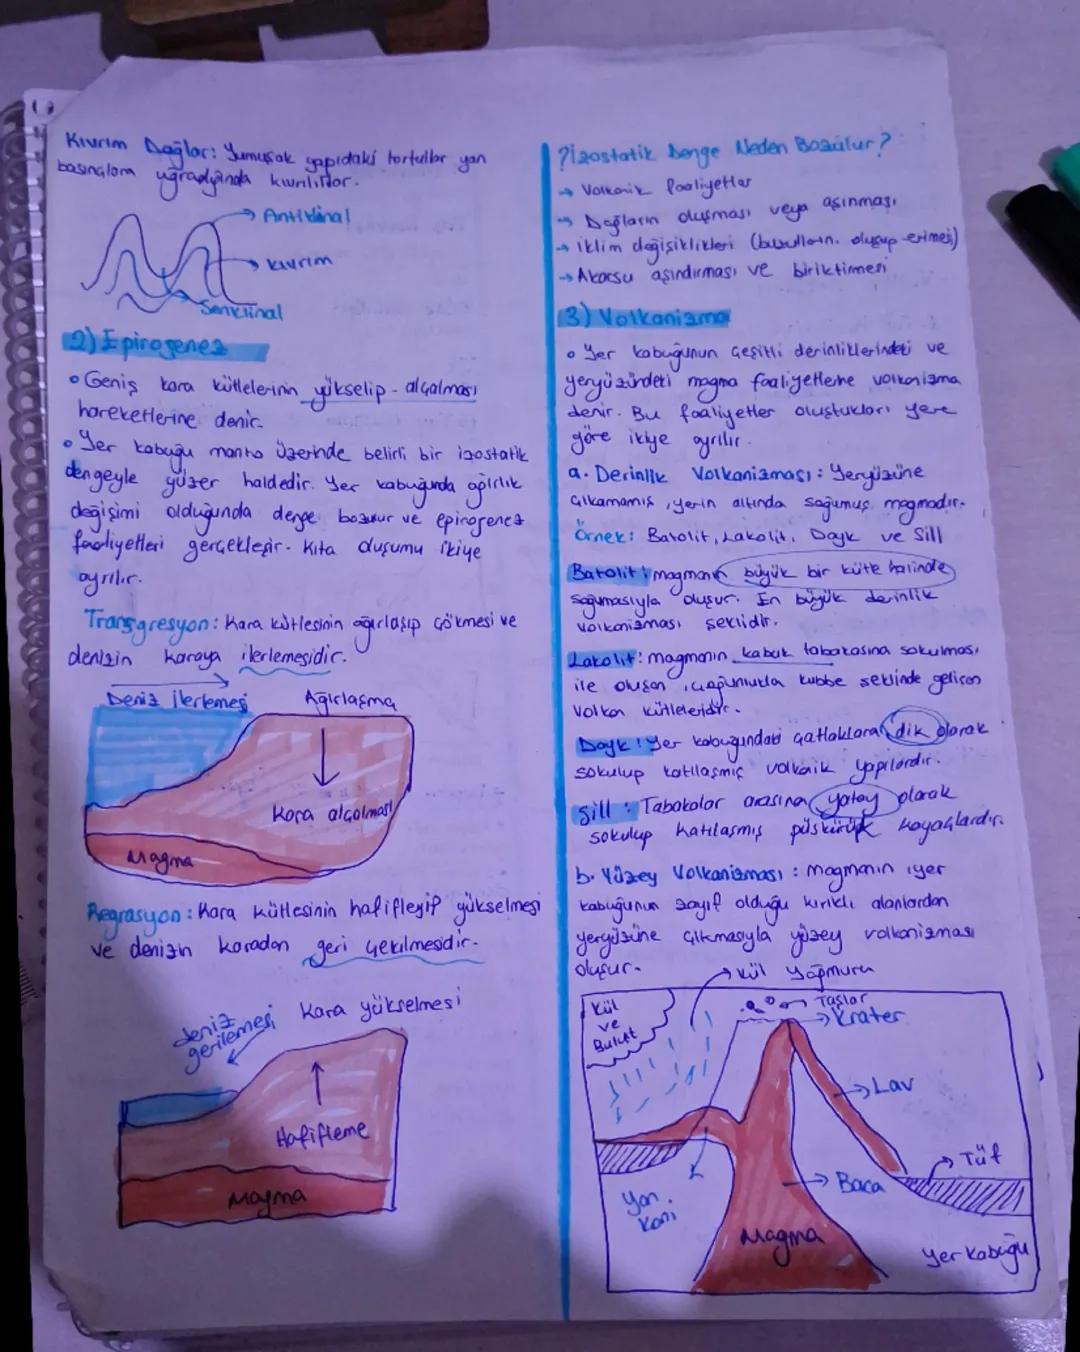 Kıvrım Dağlar: Yumuşak yapıdaki tortullar yan
basınçlara uğradığında kıvrılırlar.
Antiklinal
kıvrım
Senklinal
2) Epirogenez
• Geniş kara kütlelerinin yükselip - alçalması
hareketlerine denir.
• Yer kabuğu manto üzerinde belirli bir izostatik
dengeyle yüzer haldedir. Yer kabuğunda ağırlık
değişimi olduğunda denge bozulur ve epirogenez
faaliyetleri gerçekleşir. Kıta oluşumu ikiye
ayrılır.
Transgresyon: Kara kütlesinin ağırlaşıp çökmesi ve
denizin karaya ilerlemesidir.
Deniz ilerlemesi
Ağırlaşma
Kara alçalması
Magma
Regrasyon: Kara kütlesinin hafifleyip yükselmesi
ve denizin karadan geri çekilmesidir.
deniz
gerilemesi
Kara yükselmesi
Hafifleme
Magma
?İzostatik Denge Neden Bozulur?
→ Volkanik faaliyetler
→ Dağların oluşması veya aşınması
→ iklim değişiklikleri (buzulların oluşup erimesi)
→ Akarsu aşındırması ve biriktirmesi
3) Volkanizma
• Yer kabuğunun çeşitli derinliklerindeki ve
yeryüzündeki magma faaliyetlerine volkanizma
denir. Bu faaliyetler oluştukları yere
göre ikiye ayrılır.
a. Derinlik Volkanizması: Yeryüzüne
çıkamamış, yerin altında soğumuş magmadır.
Örnek: Batolit, Lakolit, Dayk ve Sill
Batolit: magmanın büyük bir kütle halinde
soğumasıyla oluşur. En büyük derinlik
volkanizması şeklidir.
Lakolit: magmanın kabuk tabakasına sokulması
ile oluşan, çoğunlukla kubbe şeklinde gelişen
volkan kütleleridir.
Dayk: Yer kabuğundaki çatlaklara dik olarak
sokulup katılaşmış volkaik yapılardır.
Sill: Tabakalar arasına yatay olarak
sokulup katılaşmış püskürük kayaçlardır.
b. Yüzey Volkanizması: magmanın, yer
kabuğunun zayıf olduğu kırıklı alanlardan
yeryüzüne çıkmasıyla yüzey volkanizması
oluşur.
Kül yağmuru
Kül
ve
Bulut
Taşlar
Krater
Lav
Tüf
Baca
Yan
Koni
Magma
Yer Kabuğu